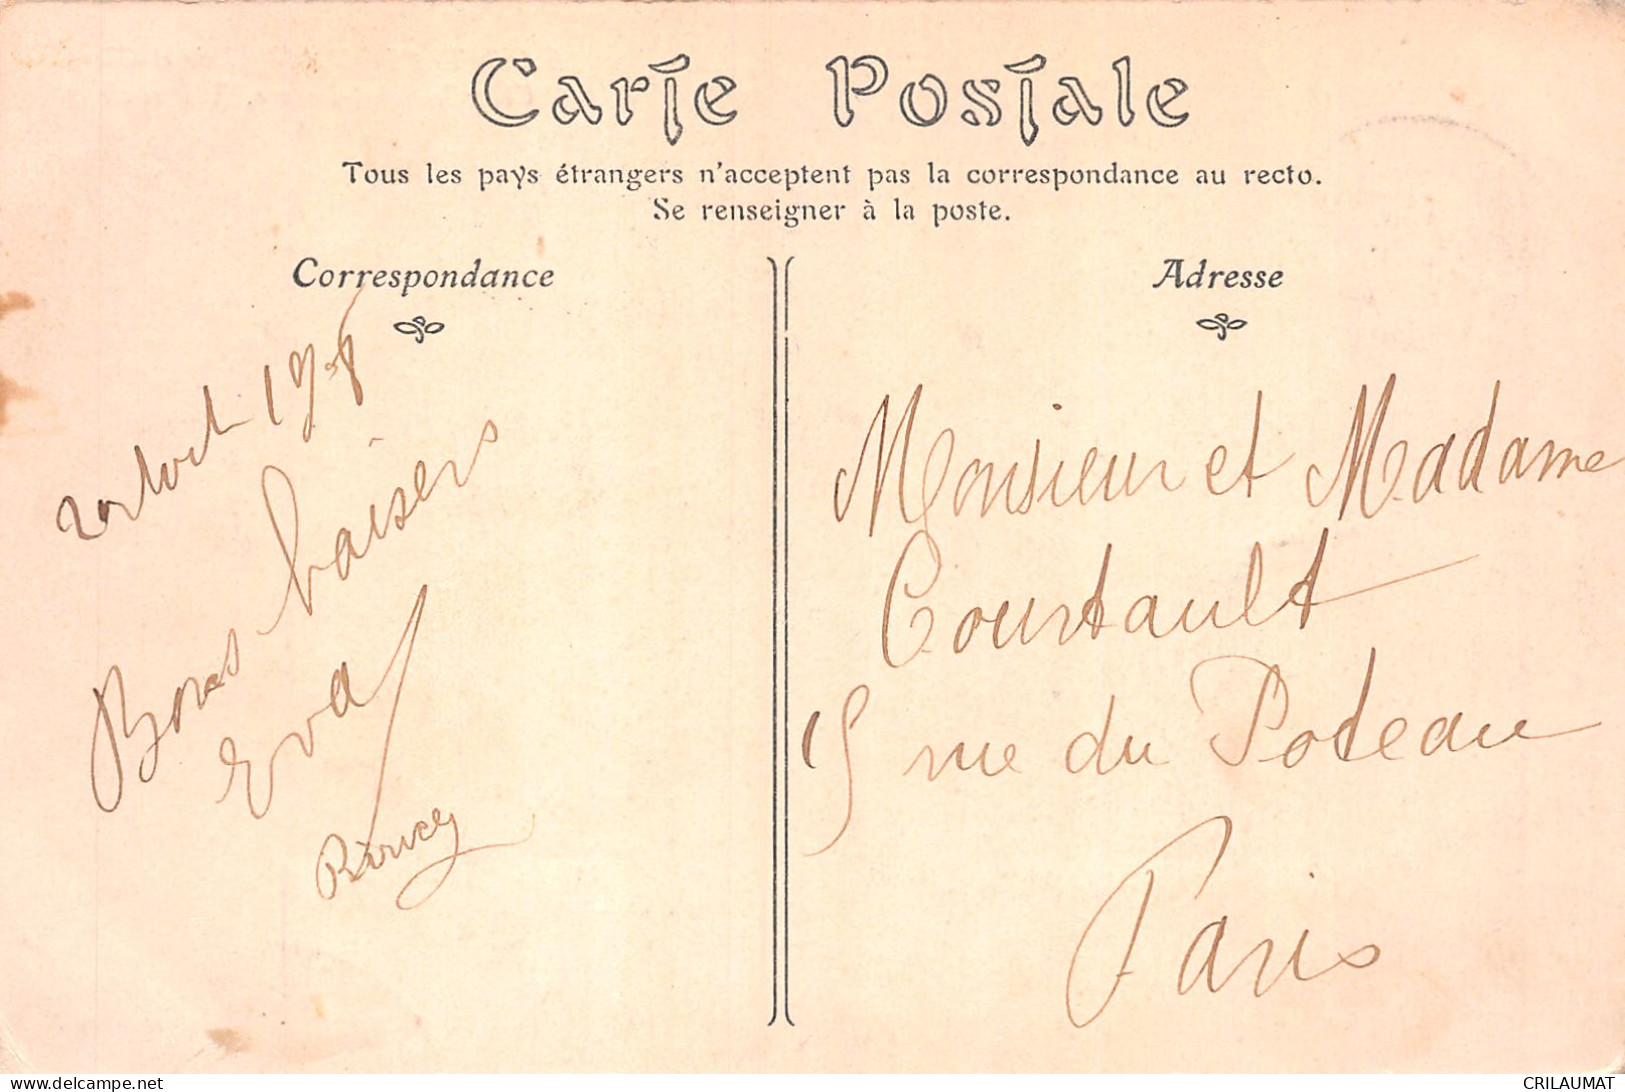 Carte Postale
Tous les pays étrangers n'acceptent pas la correspondance au recto.
Se renseigner à la poste.
Correspondance
Adresse
20 Août 1908
Bons baisers
Eva
Monsieur et Madame
Courtault
15 rue du Poteau
Paris
www.delcampe.net
CRILAUMAT